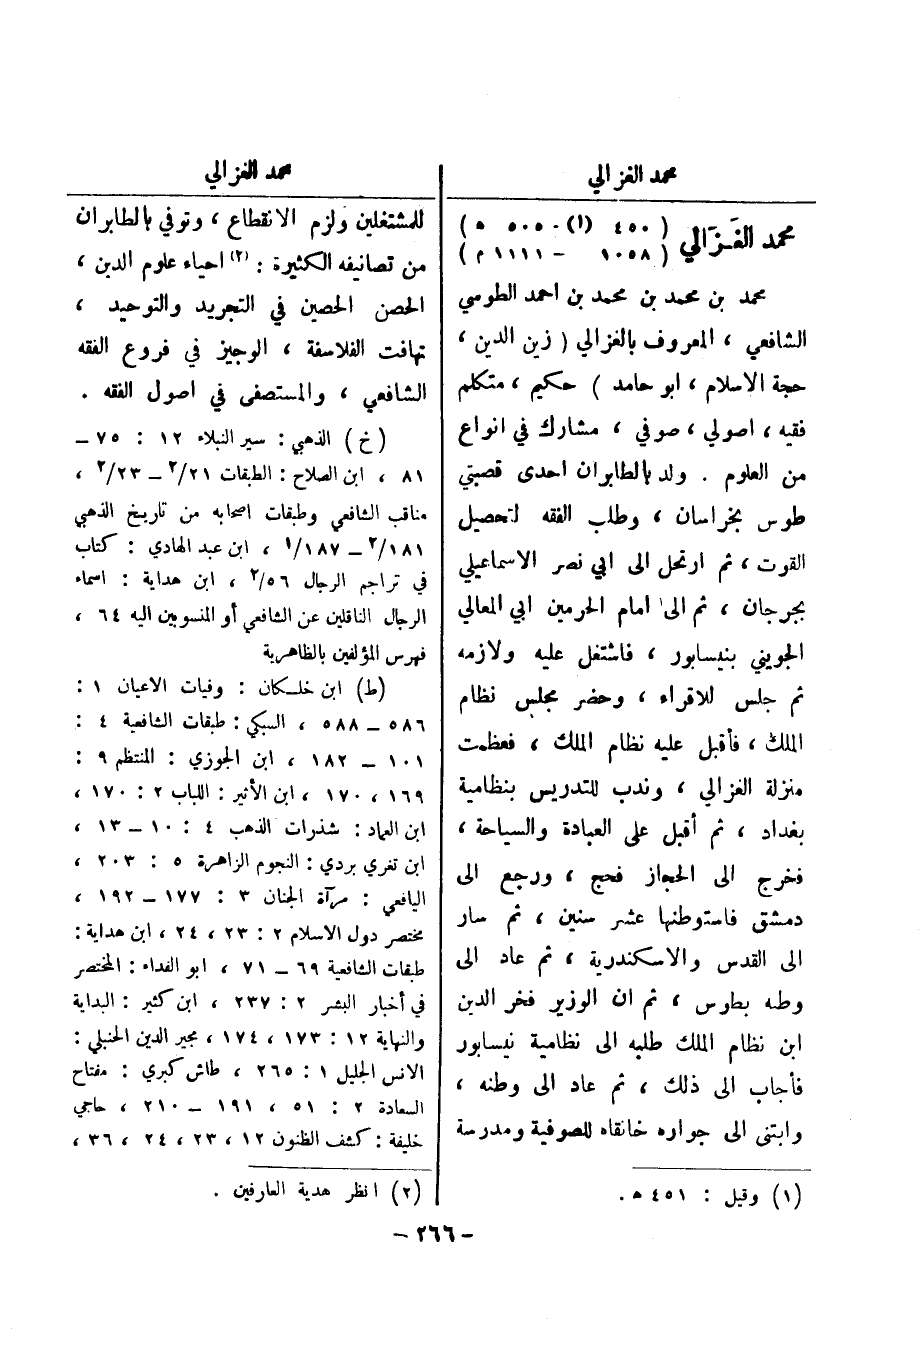 محمد الغزالي
محمد الغَزَالي ( ٤٥٠ (١) - ٥٠٥ ه )
( ١٠٥٨ - ١١١١ م )
محمد بن محمد بن محمد بن احمد الطوسي
الشافعي ، المعروف بالغزالي ( زين الدين ،
حجة الاسلام ، ابو حامد ) حكيم ، متكلم
فقيه ، اصولي ، صوفي ، مشارك في انواع
من العلوم . ولد بالطابران احدى قصبتي
طوس بخراسان ، وطلب الفقه لتحصيل
القوت ، ثم ارتحل الى ابي نصر الاسماعيلي
بجرجان ، ثم الى امام الحرمين ابي المعالي
الجويني بنيسابور ، فاشتغل عليه ولازمه
ثم جلس للاقراء ، وحضر مجلس نظام
الملك ، فأقبل عليه نظام الملك ، فعظمت
منزلة الغزالي ، وندب للتدريس بنظامية
بغداد ، ثم أقبل على العبادة والسياحة ،
فخرج الى الحجاز فحج ، ورجع الى
دمشق فاستوطنها عشر سنين ، ثم سار
الى القدس والاسكندرية ، ثم عاد الى
وطنه بطوس ، ثم ان الوزير فخر الدين
ابن نظام الملك طلبه الى نظامية نيسابور
فأجاب الى ذلك ، ثم عاد الى وطنه ،
وابتنى الى جواره خانقاه للصوفية ومدرسة
(١) وقيل : ٤٥١ ه .
محمد الغزالي
للمشتغلين ولزم الانقطاع ، وتوفي بالطابران
من تصانيفه الكثيرة : (٢) احياء علوم الدين ،
الحصن الحصين في التجريد والتوحيد ،
تهافت الفلاسفة ، الوجيز في فروع الفقه
الشافعي ، والمستصفى في اصول الفقه .
(خ) الذهبي : سير النبلاء ١٢ : ٧٥ –
٨١ ، ابن الصلاح : الطبقات ٢/٢١ – ٢/٢٣ ،
مناقب الشافعي وطبقات اصحابه من تاريخ الذهبي
٢/١٨١ – ١/١٨٧ ، ابن عبد الهادي : كتاب
في تراجم الرجال ٢/٥٦ ، ابن هداية : اسماء
الرجال الناقلين عن الشافعي أو المنسوبين اليه ٦٤ ،
فهرس المؤلفين بالظاهرية
(ط) ابن خلكان : وفيات الاعيان ١ :
٥٨٦ – ٥٨٨ ، السبكي : طبقات الشافعية ٤ :
١٠١ – ١٨٢ ، ابن الجوزي : المنتظم ٩ :
١٦٩ ، ١٧٠ ، ابن الأثير : اللباب ٢ : ١٧٠ ،
ابن العماد : شذرات الذهب ٤ : ١٠ – ١٣ ،
ابن تغري بردي : النجوم الزاهرة ٥ : ٢٠٣ ،
اليافعي : مرآة الجنان ٣ : ١٧٧ – ١٩٢ ،
مختصر دول الاسلام ٢ : ٢٣ ، ٢٤ ، ابن هداية :
طبقات الشافعية ٦٩ – ٧١ ، ابو الفداء : المختصر
في أخبار البشر ٢ : ٢٣٧ ، ابن كثير : البداية
والنهاية ١٢ : ١٧٣ ، ١٧٤ ، مجير الدين الحنبلي :
الانس الجليل ١ : ٢٦٥ ، طاش كبري : مفتاح
السعادة ٢ : ٥١ ، ١٩١ – ٢١٠ ، حاجي
خليفة : كشف الظنون ١٢ ، ٢٣ ، ٢٤ ، ٣٦ ،
(٢) انظر هدية العارفين .
- ٢٦٦ -